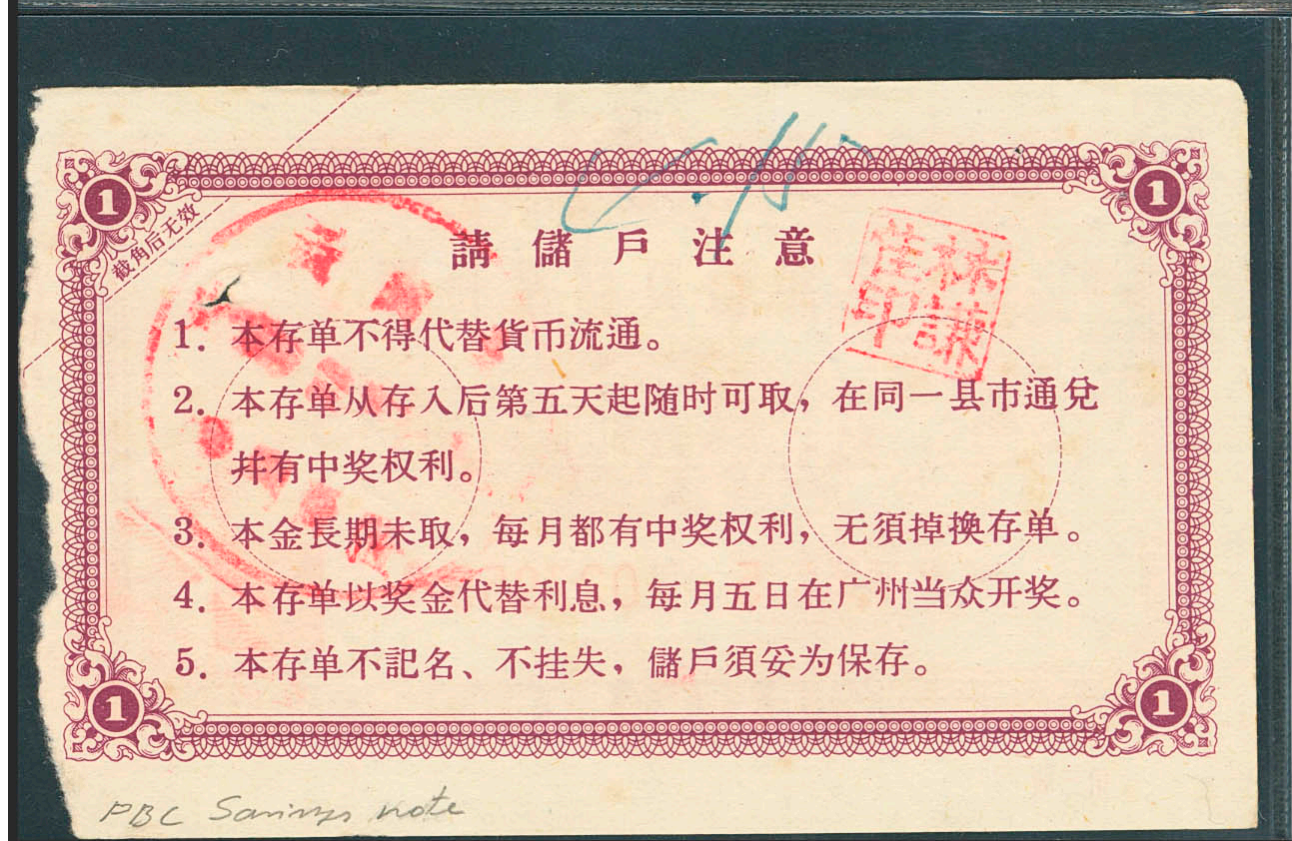 1
1
截角后无效
請儲戶注意
林謙
佳印
1. 本存单不得代替貨币流通。
2. 本存单从存入后第五天起随时可取，在同一县市通兌
幷有中奖权利。
3. 本金長期未取，每月都有中奖权利，无須掉換存单。
4. 本存单以奖金代替利息，每月五日在广州当众开奖。
5. 本存单不記名、不挂失，儲戶須妥为保存。
1
1
PBC Savings note